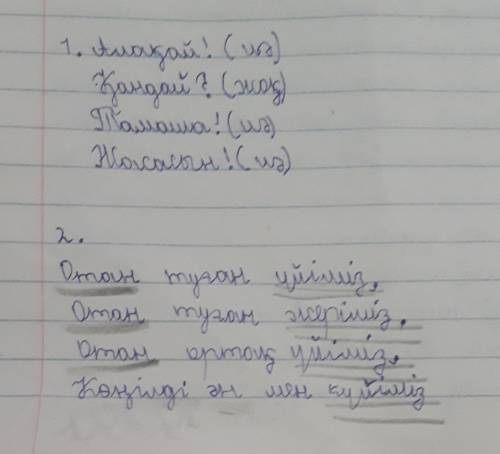 1. Алақай! (иә)
Қандай? (жоқ)
Тамаша! (иә)
Жасасын! (иә)
2.
Отан туған үйіміз,
Отан туған жеріміз,
Отан ортақ үйіміз,
Көңілді ән мен күйіміз